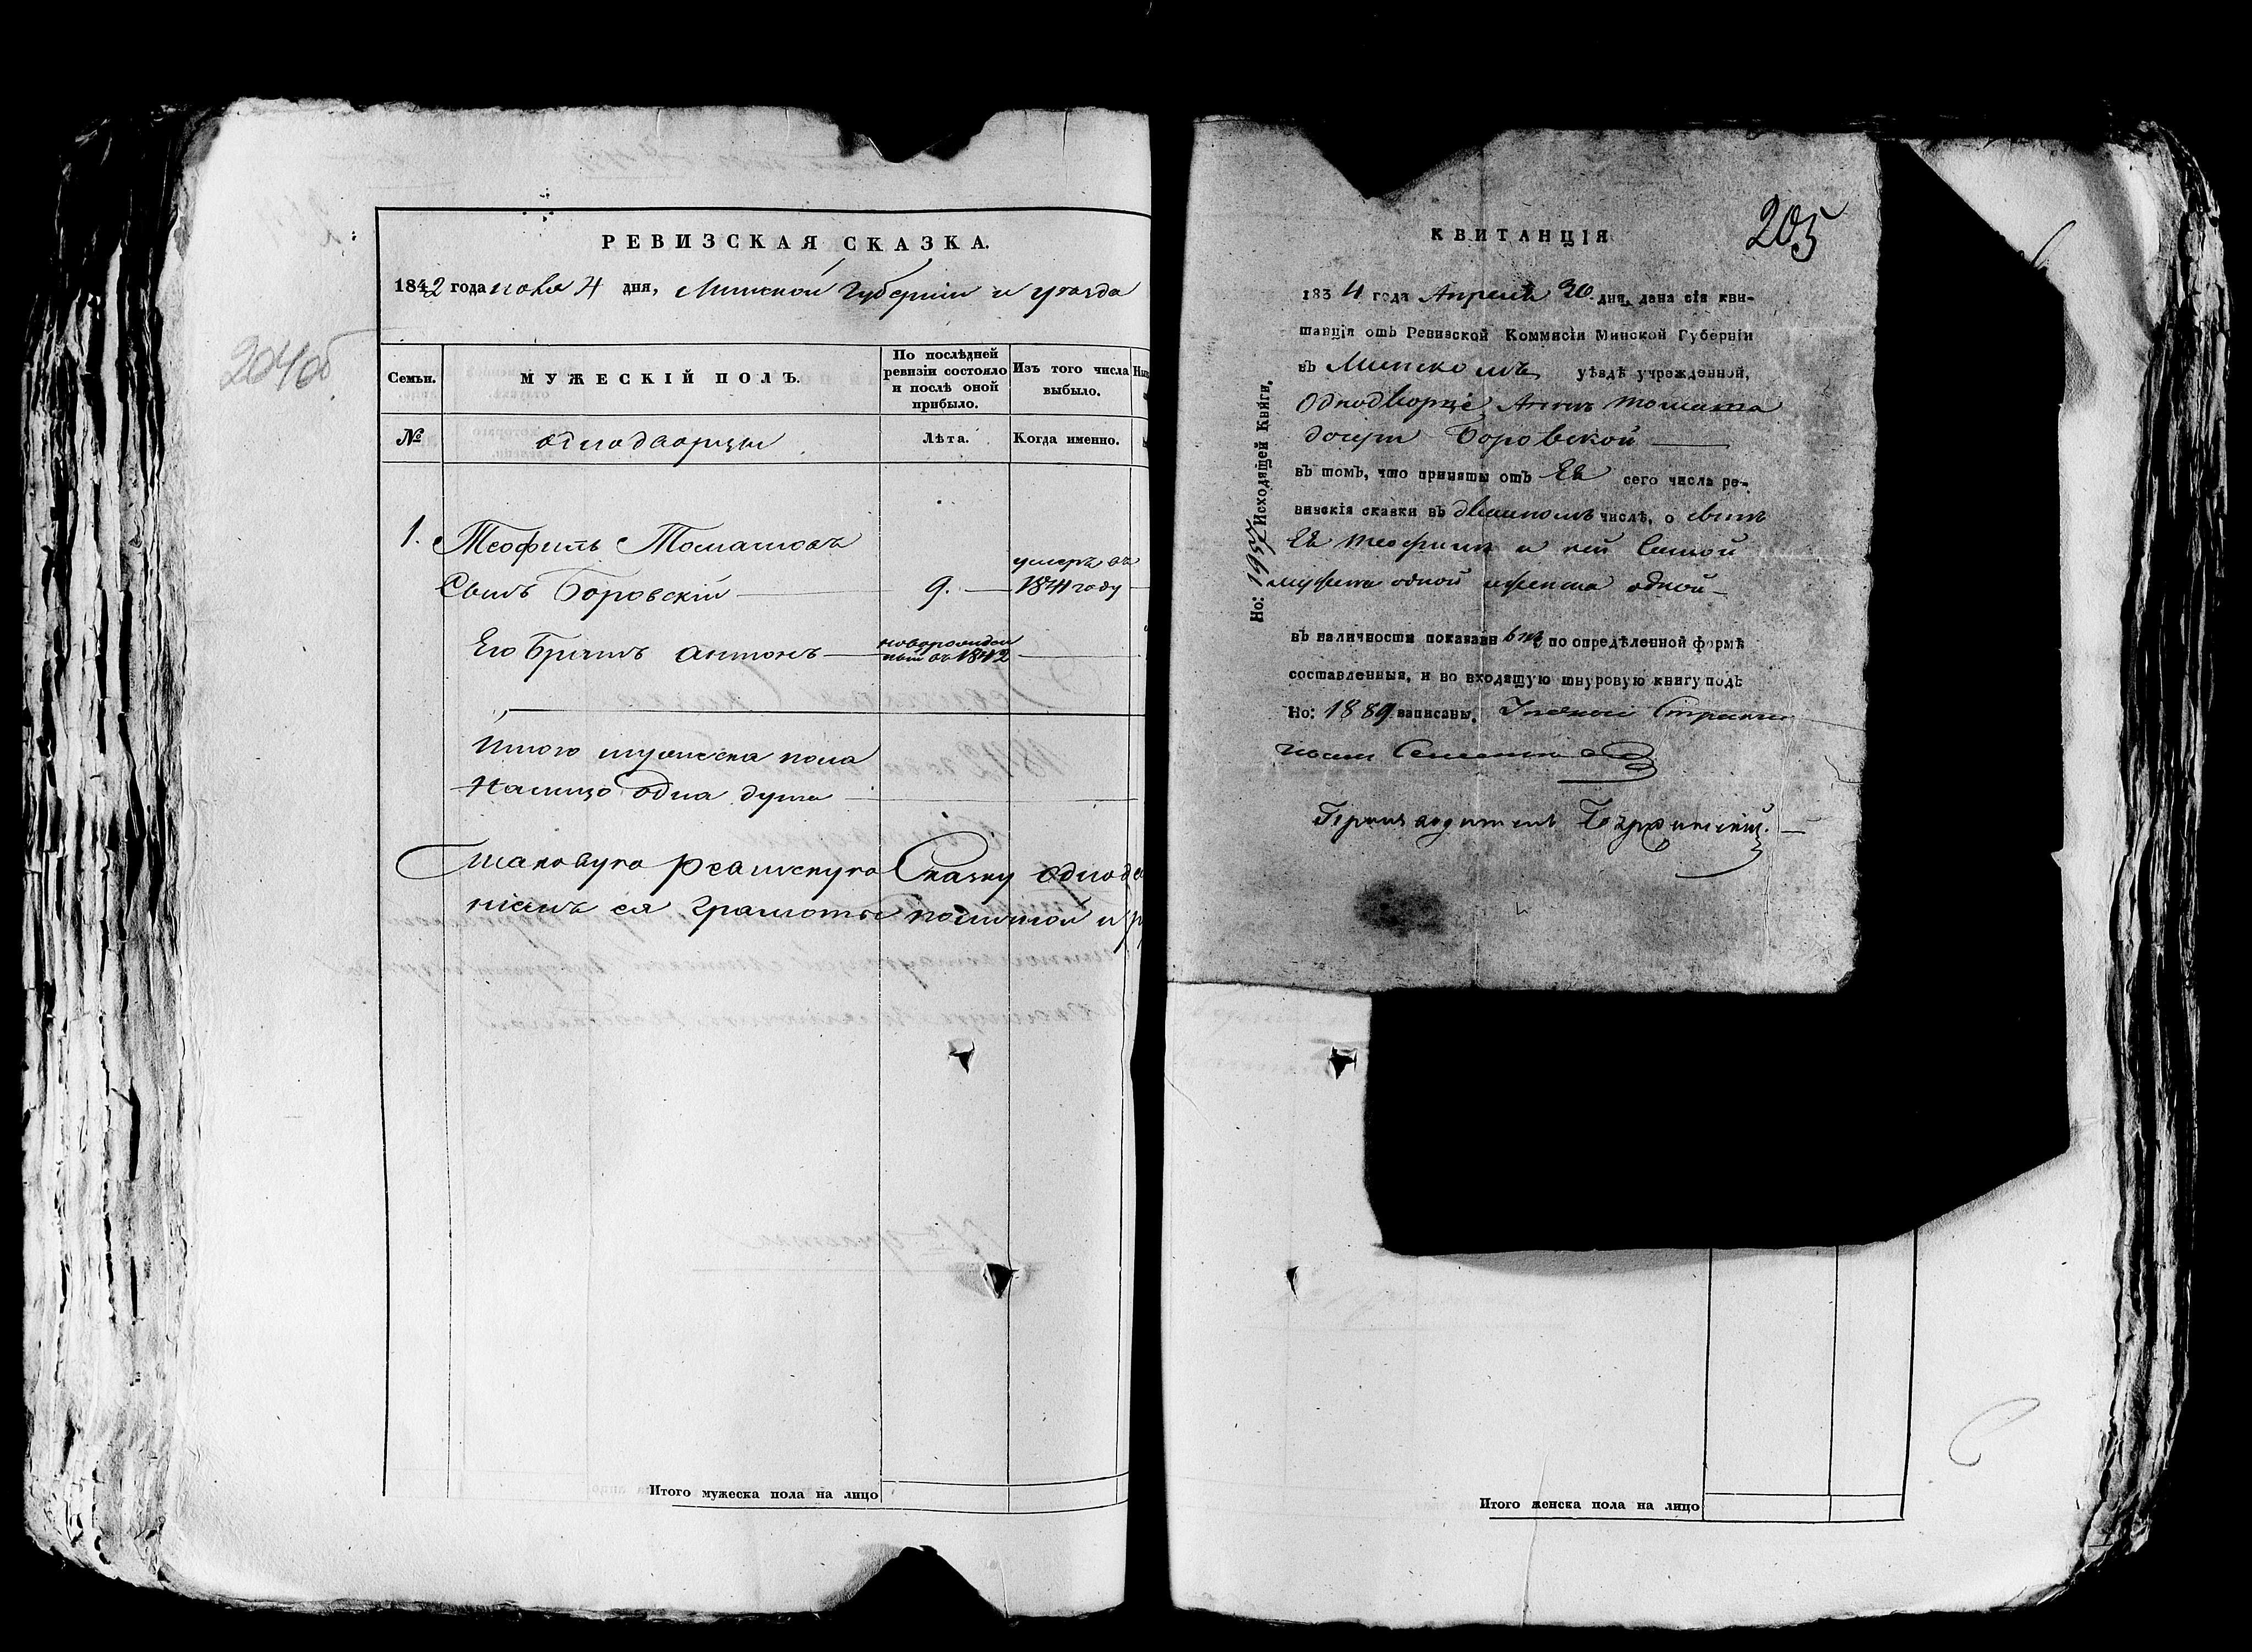 204об
РЕВИЗСКАЯ СКАЗКА.
1842 года июля 4 дня, Минской Губернии и уѣзда
Семьи.
МУЖЕСКІЙ ПОЛЪ.
По послѣдней ревизіи состояло и послѣ оной прибыло.
Изъ того числа выбыло.
№
однодворцы
Лѣта.
Когда именно.
1. Теофиль Томашовъ
умеръ въ
Сынъ Боровскій 9. 1841 году
Его Братъ Антонъ новорожден
ный въ 1842
Итого мужеска пола
Налицо одна душа
Таковую ревизскую Сказку однодво
ніемъ ея грамоты
Итого мужеска пола на лицо
205
КВИТАНЦІЯ
1834 года Апреля 30 дня, дана сія кви-
танція отъ Ревизской Коммисіи Минской Губерніи
въ Минскомъ уѣздѣ учрежденной,
Однодворце Томаша
дочери Боровской
въ томъ, что приняты отъ Ея сего числа ре-
визскія сказки въ двойномъ числѣ, о сынѣ
Ея Теофиле и ней самой
мужеска одной женска одной
въ наличности показаны по опредѣленной формѣ
составленныя, и во входящую шнуровую книгу подъ
Но: 1889 записаны.
Но: Исходящей Книги.
Итого женска пола на лицо